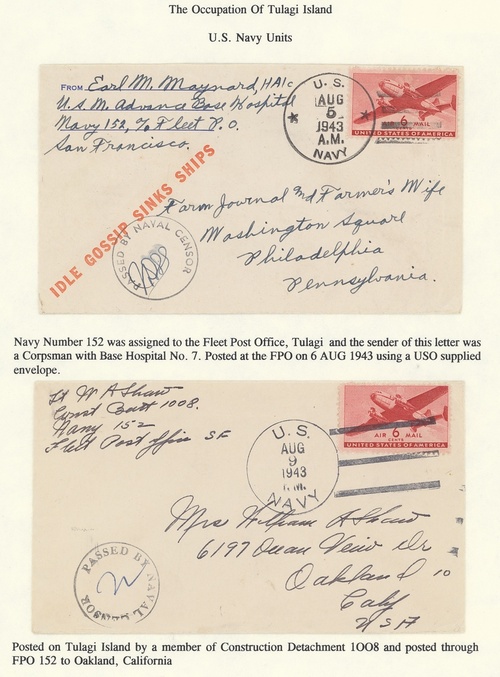 The Occupation Of Tulagi Island
U.S. Navy Units
FROM Earl M. Maynard, HA1c
U.S.N. Advance Base Hospital
Navy 152, % Fleet P.O.
San Francisco.
U. S.
AUG
5
1943
A.M.
NAVY
6
AIR MAIL
UNITED STATES OF AMERICA
IDLE GOSSIP SINKS SHIPS
PASSED BY NAVAL CENSOR
Farm Journal and Farmer's Wife
Washington Square
Philadelphia
Pennsylvania.
Navy Number 152 was assigned to the Fleet Post Office, Tulagi and the sender of this letter was
a Corpsman with Base Hospital No. 7. Posted at the FPO on 6 AUG 1943 using a USO supplied
envelope.
Lt W A Shaw
Const Batt 1008.
Navy 152
Fleet Post Office SF
U. S.
AUG
9
1943
M.
NAVY
AIR 6 MAIL
CENTS
UNITED STATES OF AMERICA
PASSED BY NAVAL CENSOR
Mrs William A Shaw
6197 Ocean View Dr
Oakland 10
Calif
USA
Posted on Tulagi Island by a member of Construction Detachment 1OO8 and posted through
FPO 152 to Oakland, California